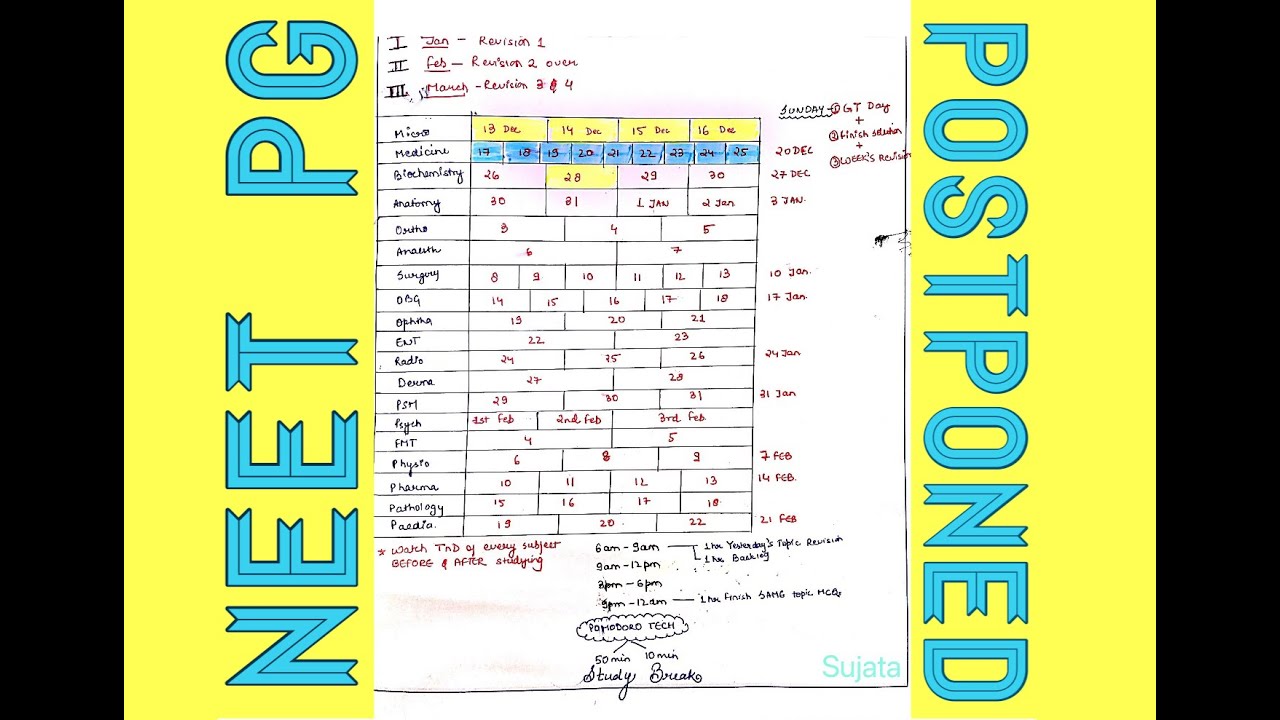 NEET PG
I Jan - Revision 1
II Feb - Revision 2 over
III March - Revision 3 & 4
SUNDAY → ① GT Day
+
② Finish selection
+
③ WEEK's Revision
Micro 13 Dec 14 Dec 15 Dec 16 Dec
Medicine 17 18 19 20 21 22 23 24 25 20 DEC
Biochemistry 26 28 29 30 27 DEC
Anatomy 30 31 1 JAN 2 Jan 3 JAN.
Ortho 3 4 5
Anaesth 6 7
Surgery 8 9 10 11 12 13 10 Jan.
OBG 14 15 16 17 18 17 Jan.
Ophtha 19 20 21
ENT 22 23
Radio 24 25 26 24 Jan
Derma 27 28
PSM 29 30 31 31 Jan
Psych 1st Feb 2nd Feb 3rd Feb
FMT 4 5
Physio 6 8 9 7 FEB
Pharma 10 11 12 13 14 FEB.
Pathology 15 16 17 18
Paedia. 19 20 22 21 FEB
* Watch TnD of every subject
BEFORE & AFTER studying
6am - 9am 1 hr Yesterday's Topic Revision
1 hr Backlog
9am - 12pm
3pm - 6pm
9pm - 12am 1 hr Finish SAME topic MCQs
POMODORO TECH
50 min 10 min
Study Break
Sujata
POSTPONED